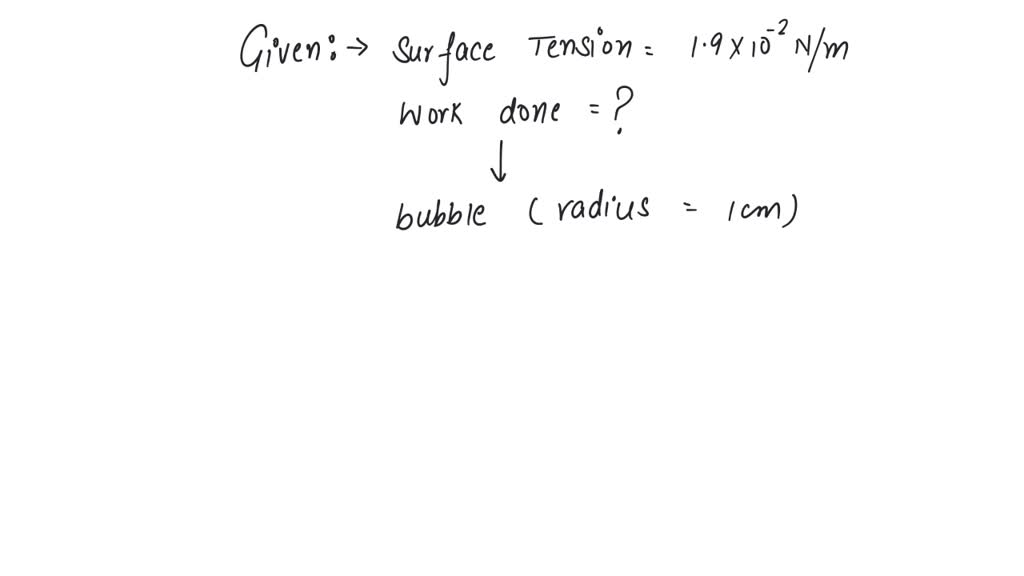 Given:→ Surface Tension = 1.9 X 10⁻² N/m
Work done = ?
↓
bubble (radius = 1cm)